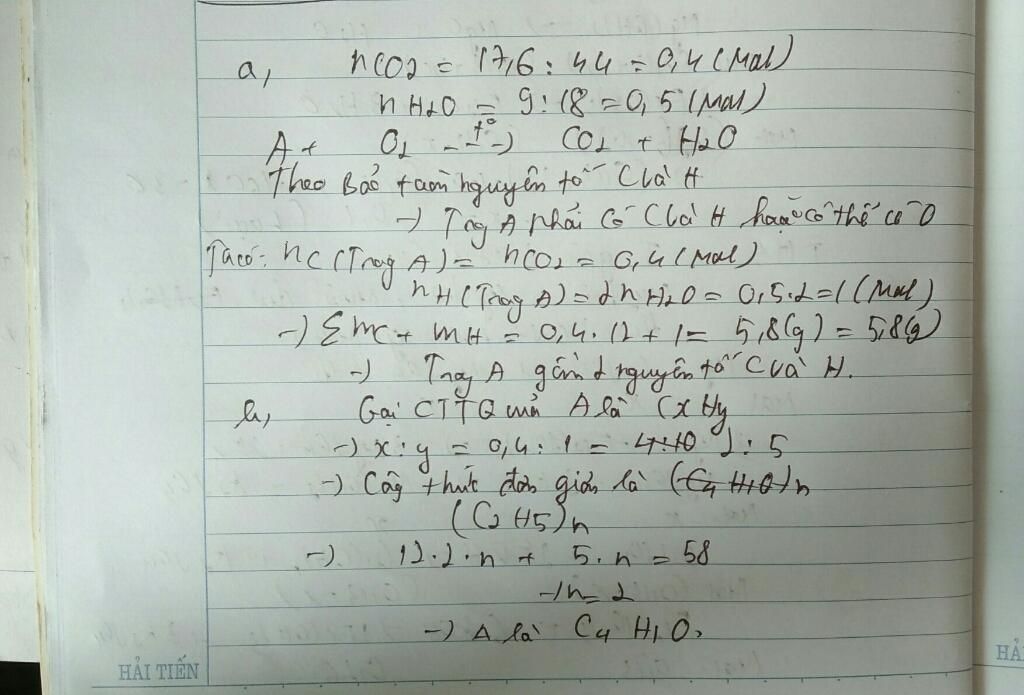 a, nCO2 = 17,6 : 44 = 0,4 (Mol)
nH2O = 9 : 18 = 0,5 (Mol)
A + O2 --t°--> CO2 + H2O
Theo Bảo toàn nguyên tố C và H
-> Trog A phải có C và H hoặc có thể có O
Ta có: nC (Trog A) = nCO2 = 0,4 (Mol)
nH (Trog A) = 2nH2O = 0,5.2 = 1 (Mol)
-> Σ mC + mH = 0,4.12 + 1 = 5,8(g) = 5,8(g)
-> Trog A gồm 2 nguyên tố C và H.
b, Gọi CTTQ của A là CxHy
-> x : y = 0,4 : 1 = 4:10 2 : 5
-> Côg thức đơn giản là (C4H10)n
(C2H5)n
-> 12.2.n + 5.n = 58
-> n = 2
-> A là C4H10.
HẢI TIẾN
HẢI